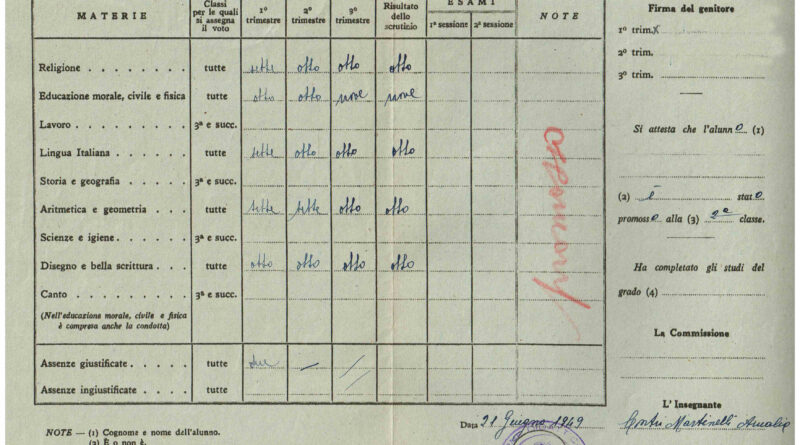 MATERIE
Classi per le quali si assegna il voto
1º trimestre
2º trimestre
3º trimestre
Risultato dello scrutinio
ESAMI
1ª sessione
2ª sessione
NOTE
Religione tutte sette otto otto otto
Educazione morale, civile e fisica tutte otto otto nove nove
Lavoro 3ª e succ.
Lingua Italiana tutte sette otto otto otto
Storia e geografia 3ª e succ.
Aritmetica e geometria tutte sette sette otto otto
Scienze e igiene 3ª e succ.
Disegno e bella scrittura tutte otto otto otto otto
Canto 3ª e succ.
(Nell'educazione morale, civile e fisica
è compresa anche la condotta)
Assenze giustificate tutte due
Assenze ingiustificate tutte
NOTE — (1) Cognome e nome dell'alunno.
(2) È o non è.
Data 21 Giugno 1949
Firma del genitore
1º trim.
2º trim.
3º trim.
Si attesta che l'alunno (1)
(2) è stato
promosso alla (3) 2ª classe.
Ha completato gli studi del
grado (4)
La Commissione
L'Insegnante
Martinelli Amalia